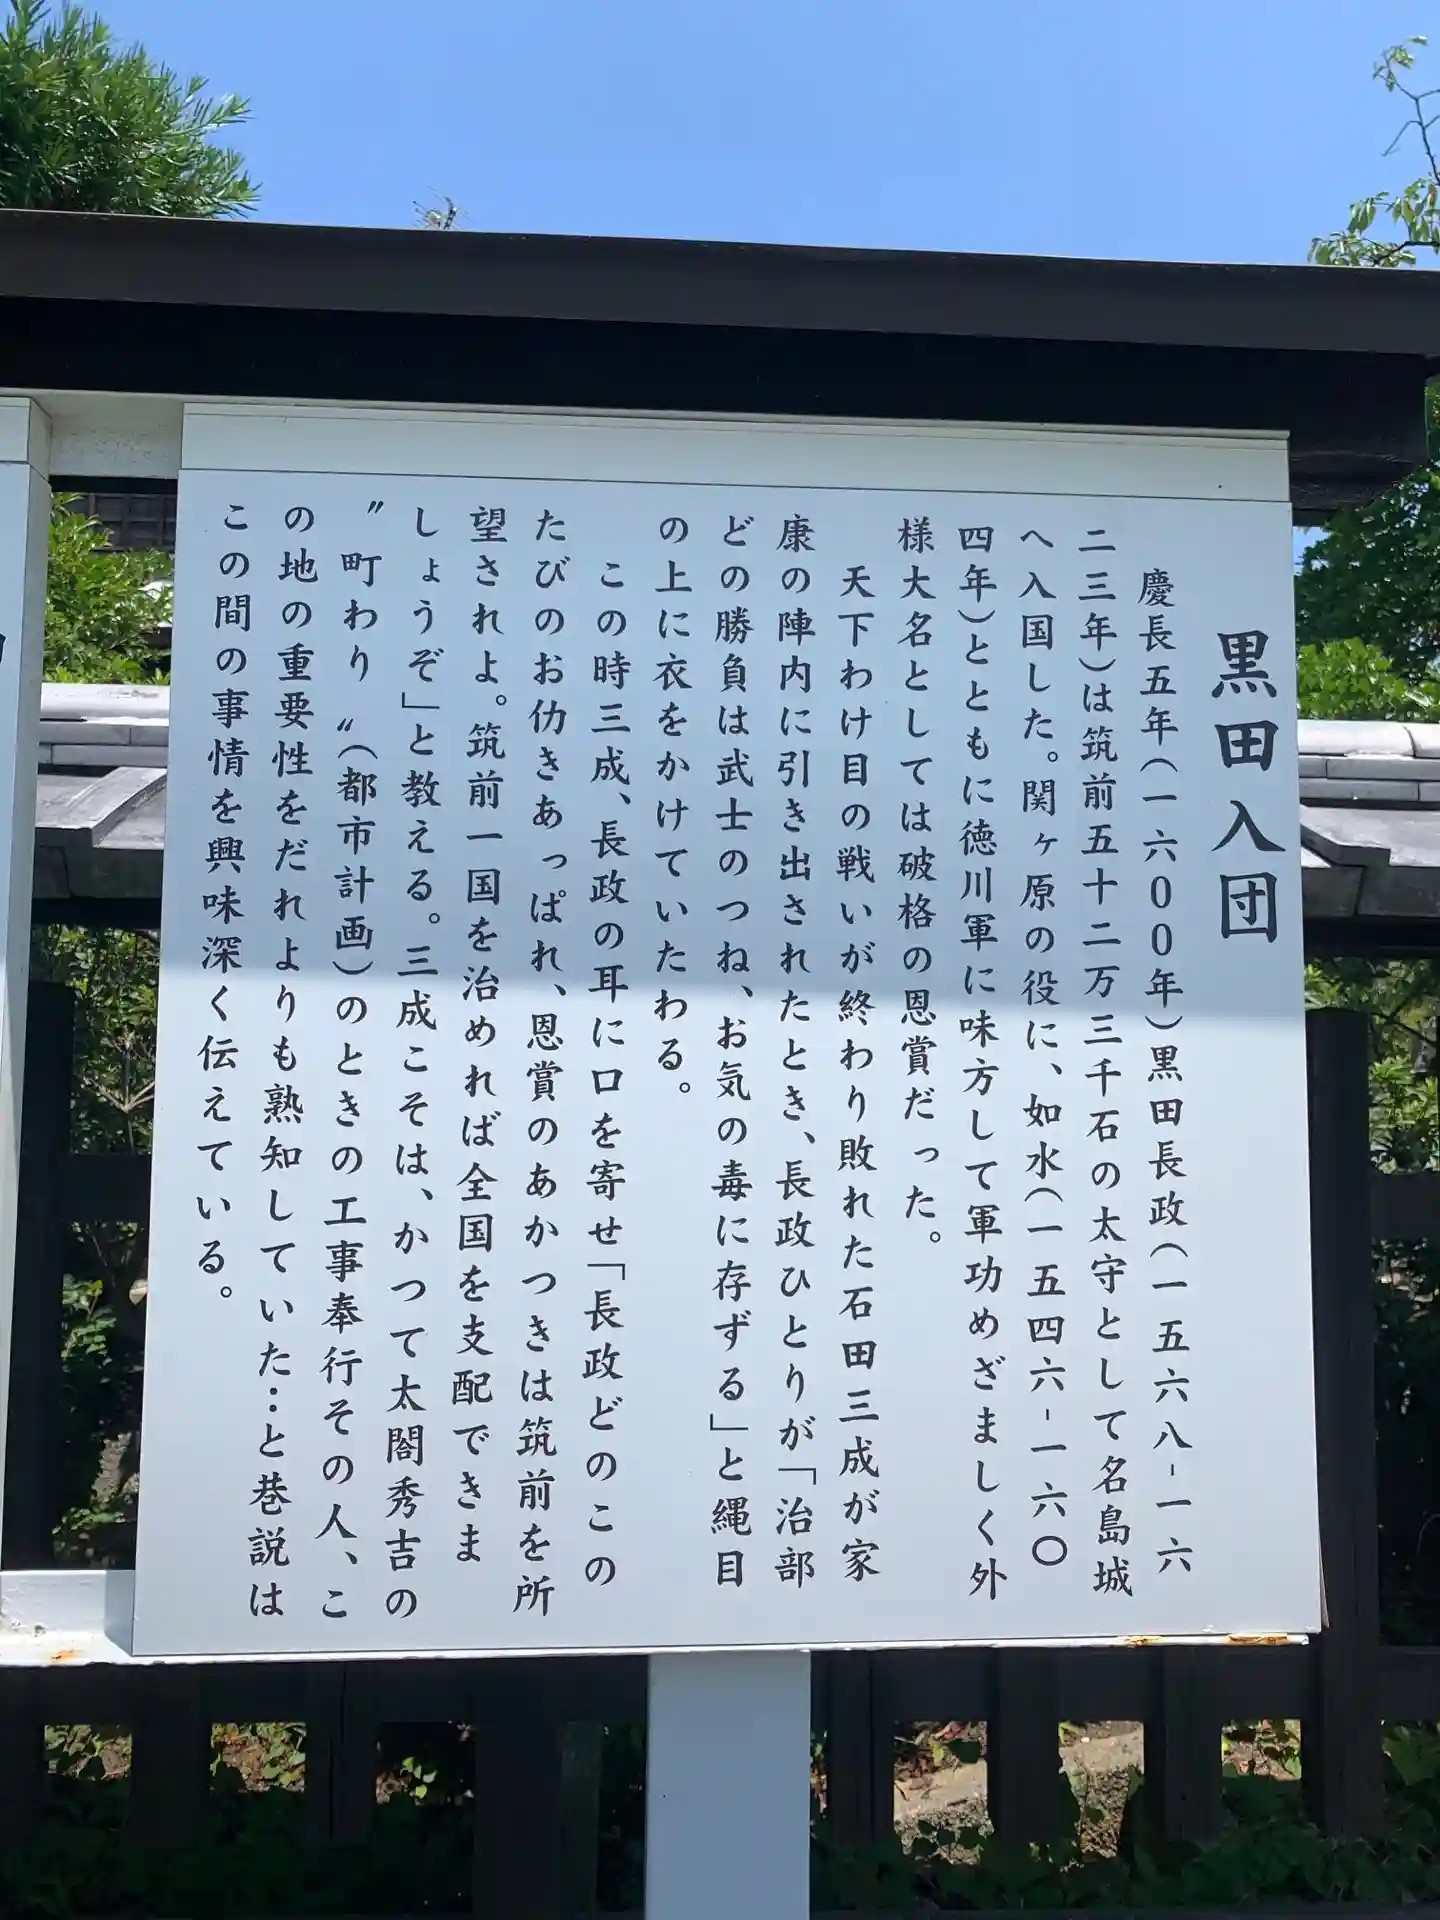 黒田入団
慶長五年(一六００年)黒田長政(一五六八-一六
二三年)は筑前五十二万三千石の太守として名島城
へ入国した。関ヶ原の役に、如水(一五四六-一六〇
四年)とともに徳川軍に味方して軍功めざましく外
様大名としては破格の恩賞だった。
天下わけ目の戦いが終わり敗れた石田三成が家
康の陣内に引き出されたとき、長政ひとりが「治部
どの勝負は武士のつね、お気の毒に存ずる」と縄目
の上に衣をかけていたわる。
この時三成、長政の耳に口を寄せ「長政どのこの
たびのお仂きあっぱれ、恩賞のあかつきは筑前を所
望されよ。筑前一国を治めれば全国を支配できま
しょうぞ」と教える。三成こそは、かつて太閤秀吉の
〃町わり〃(都市計画)のときの工事奉行その人、こ
の地の重要性をだれよりも熟知していた‥と巷説は
この間の事情を興味深く伝えている。